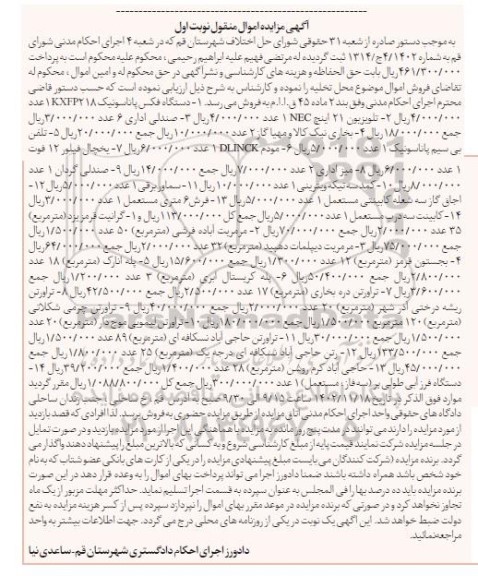 آگهی مزایده اموال منقول نوبت اول
به موجب دستور صادره از شعبه ۳۱ حقوقی شورای حل اختلاف شهرستان قم که در شعبه ۴ اجرای احکام مدنی شورای
قم به شماره ۱۴۰۲/ج۴/۱۳۱۴ ثبت گردیده له مرتضی فهیم علیه ابراهیم رحیمی، محکوم علیه محکوم است به پرداخت
۴۶۱/۳۰۰/۰۰۰ ریال بابت حق الحفاظه و هزینه های کارشناسی و نشر آگهی در حق محکوم له و امین اموال، محکوم له
تقاضای فروش اموال موضوع محل تخلیه را نموده و کارشناس به شرح ذیل ارزیابی نموده است که حسب دستور قاضی
محترم اجرای احکام مدنی وفق بند ۲ ماده ۴۵ ق.ا.ا.م به فروش می رسد. ۱- دستگاه فکس پاناسونیک KXFP۲۱۸ ۱ عدد
۴/۰۰۰/۰۰۰ ریال ۲- تلویزیون ۲۱ اینچ NEC ۱ عدد ۴/۰۰۰/۰۰۰ ریال ۳- صندلی اداری ۶ عدد ۳/۰۰۰/۰۰۰ ریال
جمع ۱۸/۰۰۰/۰۰۰ ریال ۴- بخاری نیک کالا و مهیا گاز ۲ عدد ۱۰/۰۰۰/۰۰۰ ریال جمع ۲۰/۰۰۰/۰۰۰ ریال ۵- تلفن
بی سیم پاناسونیک ۱ عدد ۵/۰۰۰/۰۰۰ ریال ۶- مودم DLINCK ۱ عدد ۶/۰۰۰/۰۰۰ ریال ۷- یخچال فیلور ۱۲ فوت
۱ عدد ۶۰/۰۰۰/۰۰۰ ریال ۸- میز اداری ۲ عدد ۷/۰۰۰/۰۰۰ ریال جمع ۱۴/۰۰۰/۰۰۰ ریال ۹- صندلی گردان ۱ عدد
۸/۰۰۰/۰۰۰ ریال ۱۰- کمد ۱ عدد ۱۰/۰۰۰/۰۰۰ ریال ۱۱- سماور برقی ۱ عدد ۵/۰۰۰/۰۰۰ ریال ۱۲-
اجاق گاز سه شعله کابینتی مستعمل ۱ عدد ۵/۰۰۰/۰۰۰ ریال ۱۳- فرش ۶ متری مستعمل ۱ عدد ۳/۰۰۰/۰۰۰ ریال
۱۴- کابینت سه درب مستعمل ۱ عدد ۵/۰۰۰/۰۰۰ ریال جمع کل ۱۱۳/۰۰۰/۰۰۰ ریال و ۱- گرانیت قرمز یزد (مترمربع)
۳۵ عدد ۲/۰۰۰/۰۰۰ ریال جمع ۷۰/۰۰۰/۰۰۰ ریال ۲- مرمریت آباده فرشی (مترمربع) ۵۰ عدد ۱/۵۰۰/۰۰۰ ریال
جمع ۷۵/۰۰۰/۰۰۰ ریال ۳- مرمریت دیپلمات دهبید (مترمربع) ۳۲ عدد ۲/۰۰۰/۰۰۰ ریال جمع ۶۴/۰۰۰/۰۰۰ ریال
۴- بجستون قرمز (مترمربع) ۱۲ عدد ۱/۳۰۰/۰۰۰ ریال جمع ۱۵/۶۰۰/۰۰۰ ریال ۵- پله انارک (مترمربع) ۱۸ عدد
۲/۸۰۰/۰۰۰ ریال جمع ۵۰/۴۰۰/۰۰۰ ریال ۶- پله کریستال نیری (مترمربع) ۳ عدد ۱/۲۰۰/۰۰۰ ریال جمع
۳/۶۰۰/۰۰۰ ریال ۷- تراورتن دره بخاری (مترمربع) ۱۷ عدد ۲/۵۰۰/۰۰۰ ریال جمع ۴۲/۵۰۰/۰۰۰ ریال ۸- تراورتن
ریشه درختی آذر شهر (مترمربع) ۲۰ عدد ۲/۰۰۰/۰۰۰ ریال جمع ۴۰/۰۰۰/۰۰۰ ریال ۹- تراورتن چرمی شکلاتی
(مترمربع) ۱۲۰ مترمربع ۱/۵۰۰/۰۰۰ ریال جمع ۱۸۰/۰۰۰/۰۰۰ ریال ۱۰- تراورتن لیمویی موج دار (مترمربع) ۲۰ عدد
۱/۵۰۰/۰۰۰ ریال جمع ۳۰/۰۰۰/۰۰۰ ریال ۱۱- تراورتن حاجی آباد نسکافه ای (مترمربع) ۸۹ عدد ۱/۵۰۰/۰۰۰ ریال
جمع ۱۳۳/۵۰۰/۰۰۰ ریال ۱۲- تراورتن حاجی آباد نسکافه ای درجه یک (مترمربع) ۲۵ عدد ۱/۸۰۰/۰۰۰ ریال جمع
۴۵/۰۰۰/۰۰۰ ریال ۱۳- حاجی آباد کرم روشن (مترمربع) ۲۸ عدد ۱/۴۰۰/۰۰۰ ریال جمع ۳۹/۲۰۰/۰۰۰ ریال ۱۴-
دستگاه فرز آبی طولی بر (سه فاز، مستعمل) ۱ عدد ۳۰۰/۰۰۰/۰۰۰ ریال جمع کل ۱/۰۸۸/۸۰۰/۰۰۰ ریال مقرر گردید
موارد فوق الذکر در تاریخ ۱۴۰۴/۱۱/۱۸ ساعت ۹/۱۵ الی ۹/۳۰ صبح به آدرس قم خ ساحلی جنب زندان ساحلی
دادگاه های حقوقی واحد اجرای احکام مدنی اتاق مزایده از طریق مزایده حضوری به فروش برسد. لذا افرادی که قصد بازدید
از مورد مزایده را دارند می توانند در مدت پنج روز مانده به مزایده با هماهنگی این اجرا از مورد مزایده بازدید و در صورت تمایل
در جلسه مزایده شرکت نمایند قیمت پایه از مبلغ کارشناسی شروع و به کسانی که بالاترین مبلغ را پیشنهاد دهند واگذار می
گردد. برنده مزایده (شرکت کنندگان می بایست مبلغ پیشنهادی مزایده را در یکی از کارت های بانکی عضو شتاب که به نام
خود شخص باشد همراه داشته باشند ضمنا دادورز اجرا می تواند پرداخت بهای اموال را به وعده قرار دهد در این صورت
برنده مزایده باید ده درصد بها را فی المجلس به عنوان سپرده به قسمت اجرا تسلیم نماید. حداکثر مهلت مزبور از یک ماه
تجاوز نخواهد کرد و در صورتی که برنده مزایده در موعد مقرر بهای اموال را نپردازد سپرده پس از کسر هزینه مزایده به نفع
دولت ضبط خواهد شد. این آگهی یک نوبت در یکی از روزنامه های محلی درج می گردد. جهت اطلاعات بیشتر به واحد
مراجعه نمائید.
دادورز اجرای احکام دادگستری شهرستان قم - ساعدی نیا